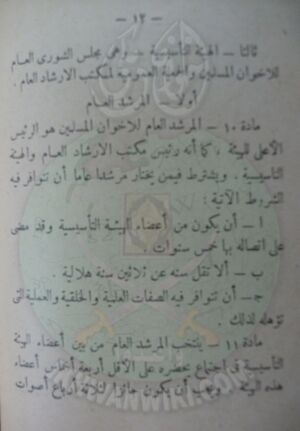 — ١٢ —
ثالثا — الهيئة التأسيسية — وهى مجلس الشورى العام
للاخوان المسلمين والجمعية العمومية لمكتب الارشاد العام .
أولا — المرشد العام
مادة ١٠ — المرشد العام للاخوان المسلمين هو الرئيس
الأعلى للهيئة ، كما أنه رئيس مكتب الارشاد العام والهيئة
التأسيسية ، ويشترط فيمن يختار مرشدا عاما أن تتوافر فيه
الشروط الآتية :
ا — أن يكون من أعضاء الهيئة التأسيسية وقد مضى
على اتصاله بها خمس سنوات .
ب — ألا تقل سنه عن ثلاثين سنة هلالية .
جـ — أن تتوافر فيه الصفات العلمية والخلقية والعملية التى
تؤهله لذلك .
مادة ١١ — ينتخب المرشد العام من بين أعضاء الهيئة
التأسيسية فى اجتماع يحضره على الأقل أربعة أخماس أعضاء
هذه الهيئة ويجب أن يكون حائزا لثلاثة أرباع أصوات